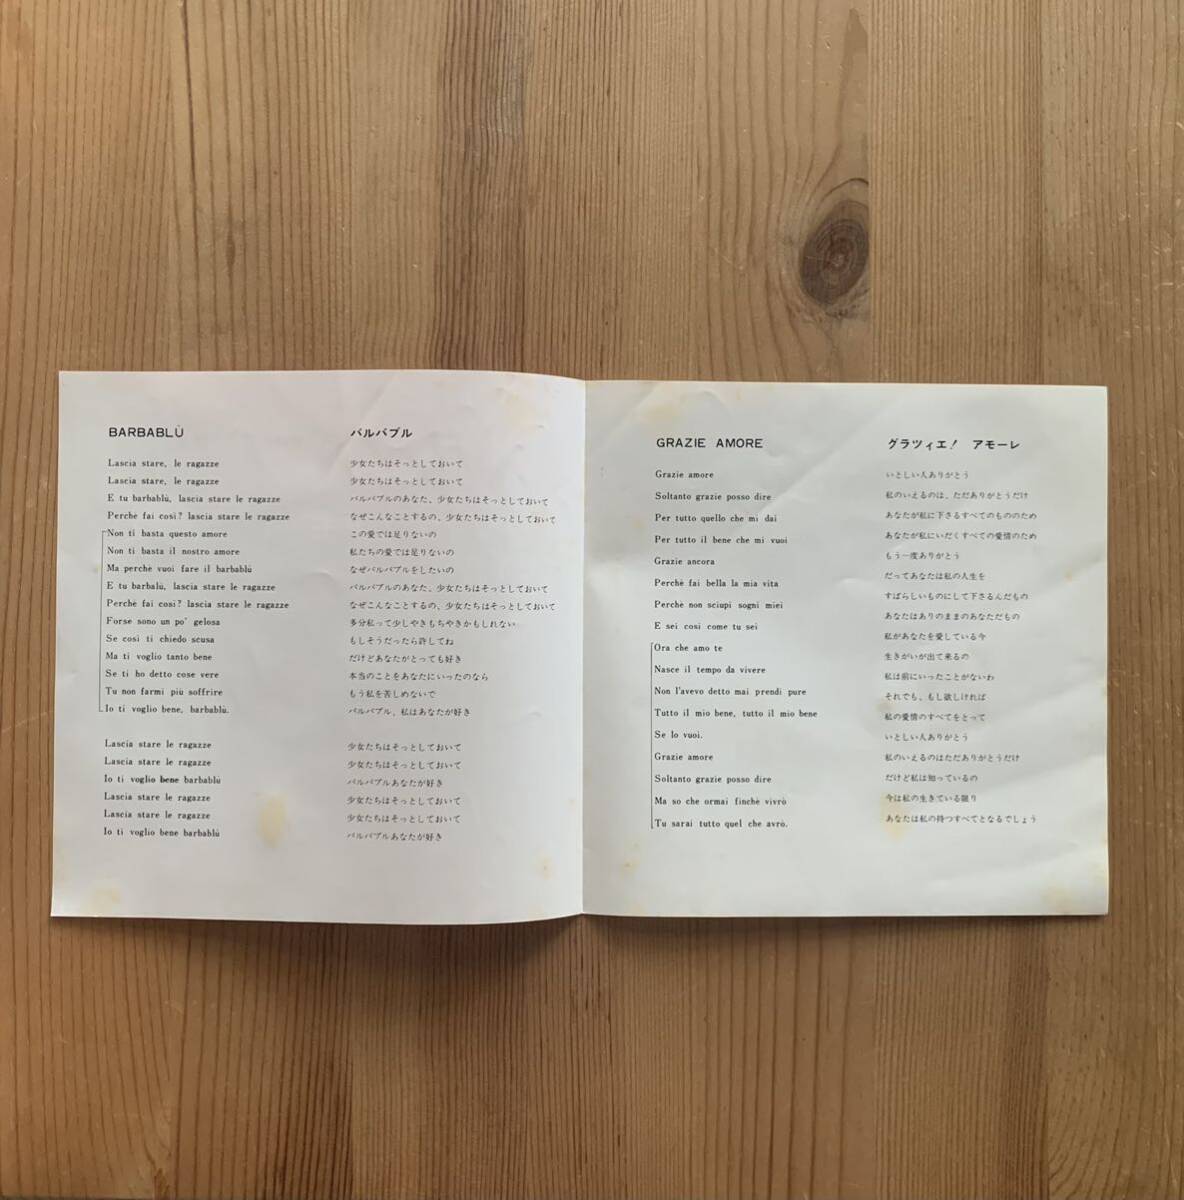 BARBABLÙ
Lascia stare, le ragazze
Lascia stare, le ragazze
E tu barbablù, lascia stare le ragazze
Perchè fai così? lascia stare le ragazze
Non ti basta questo amore
Non ti basta il nostro amore
Ma perchè vuoi fare il barbablù
E tu barbalù, lascia stare le ragazze
Perchè fai così? lascia stare le ragazze
Forse sono un po' gelosa
Se così ti chiedo scusa
Ma ti voglio tanto bene
Se ti ho detto cose vere
Tu non farmi più soffrire
Io ti voglio bene, barbablù.
Lascia stare le ragazze
Lascia stare le ragazze
Io ti voglio bene barbablù
Lascia stare le ragazze
Lascia stare le ragazze
Io ti voglio bene barbablù
バルバブル
少女たちはそっとしておいて
少女たちはそっとしておいて
バルバブルのあなた、少女たちはそっとしておいて
なぜこんなことするの、少女たちはそっとしておいて
この愛では足りないの
私たちの愛では足りないの
なぜバルバブルをしたいの
バルバブルのあなた、少女たちはそっとしておいて
なぜこんなことするの、少女たちはそっとしておいて
多分私って少しやきもちやきかもしれない
もしそうだったら許してね
だけどあなたがとっても好き
本当のことをあなたにいったのなら
もう私を苦しめないで
バルバブル、私はあなたが好き
少女たちはそっとしておいて
少女たちはそっとしておいて
バルバブルあなたが好き
少女たちはそっとしておいて
少女たちはそっとしておいて
バルバブルあなたが好き
GRAZIE AMORE
Grazie amore
Soltanto grazie posso dire
Per tutto quello che mi dai
Per tutto il bene che mi vuoi
Grazie ancora
Perchè fai bella la mia vita
Perchè non sciupi sogni miei
E sei così come tu sei
Ora che amo te
Nasce il tempo da vivere
Non l'avevo detto mai prendi pure
Tutto il mio bene, tutto il mio bene
Se lo vuoi.
Grazie amore
Soltanto grazie posso dire
Ma so che ormai finchè vivrò
Tu sarai tutto quel che avrò.
グラツィエ! アモーレ
いとしい人ありがとう
私のいえるのは、ただありがとうだけ
あなたが私に下さるすべてのもののため
あなたが私にいだくすべての愛情のため
もう一度ありがとう
だってあなたは私の人生を
すばらしいものにして下さるんだもの
あなたはありのままのあなただもの
私があなたを愛している今
生きがいが出て来るの
私は前にいったことがないわ
それでも、もし欲しければ
私の愛情のすべてをとって
いとしい人ありがとう
私のいえるのはただありがとうだけ
だけど私は知っているの
今は私の生きている限り
あなたは私の持つすべてとなるでしょう